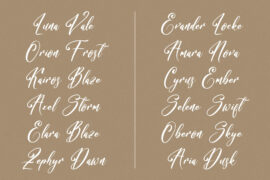 Luna Vale
Orion Frost
Kairos Blaze
Axel Storm
Elara Blaze
Zephyr Dawn
Evander Locke
Amara Nova
Cyrus Ember
Selene Swift
Oberon Skye
Aria Dusk